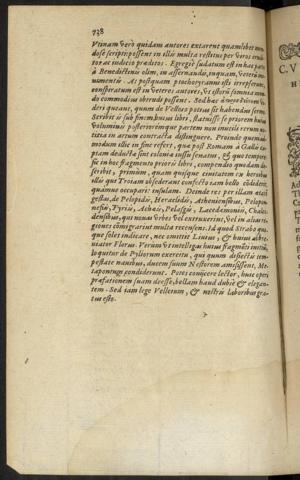 738
Vtinam verò quidam autores extarent quamlibet mendosè scripti: possent in
illis multa restitui per viros eruditos
ac iudicio præditos. Egregiè sudatum est in hac parte
à Benedictinis olim, in asseruandis, inquam, veteris
monumentis. At postquam ptochotyrannis isti irrepserunt,
conspiratum est in veteres autores, vt
commodius obtrudi possent. Sed hæc
queant, quum de Velleio potius sit habendus sermo.
Scribit is sub finem huius libri, statuisse se priorem huius
Voluminis posteriorémque partem non inutili rerum notitia
in arctum contracta distinguere. Proinde quum
modum illic in fine refert, quæ post Romam à Gallis captam
deductæ sint coloniæ iussu senatus, & quo tempore:
sic in hoc fragmento prioris libri, compendio quodam describit,
primùm, quam quisque ciuitatem ex heroibus
illis qui Troiam obsederant confecto iam bello condiderit,
quámue occuparit insulam. Deinde res per illam ætatem
gestas, de Pelopidis, Heraclidis, Atheniensibus, Peloponnesiis,
Tyriis, Achæis, Pelasgis, Lacedæmoniis, Chalcidensibus,
qui nouas Vrbes vel extruxerint, vel in alias regiones
commigrarint multa recensens. Id quod Strabo quoque
solet indicare, nec omittit Liuius, & huius abbreuiator
Florus. Verùm vt intelligas huius fragmenti initium,
loquitur de Pyliorum exercitu, qui quum disiecti tempestate
nauibus, ducem suum Nestorem amisissent, Metapontum
condiderunt. Potes coniicere lector, huic operi
præfationem suam deesse, bellam haud dubiè & elegantem.
Sed iam lege Velleium, & nostris laboribus gratus
esto.
C. V
H